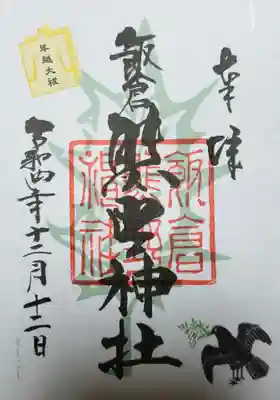 奉拝
飯倉
熊野神社
飯倉
熊野
神社
令和四年十二月十二日
年越大祓